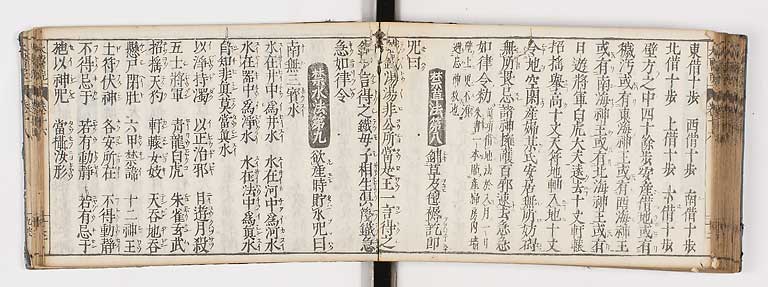 東借十歩 西借十歩 南借十歩
北借十歩 上借十歩 下借十歩
壁方之中四十餘歩安産借地或有
穢汚或有東海神王或有西海神王
或有南海神王或有北海神王或有
日遊將軍白虎夫人遠去十丈軒轅
招搖擧高十丈天符地軸入地十丈
令地空閑産婦某氏安居無所妨碍
無所畏忌諸神擁護百邪速去急急
如律令勅
禁草法第八 鋪草及氊褥訖即
咒曰
鐵鐵湯湯非公所當是王一言得之
銅二言得之鐵母子相生俱滅鐵急
急如律令
禁水法第九 欲産時貯水咒曰
南無三寶水
水在井中爲井水 水在河中爲河水
水在器中爲淨水 水在法中爲眞水
自知非眞莫當眞水
以淨持濁 以正治邪 日遊月殺
五士將軍 青龍白虎 朱雀玄武
招搖天狗 軒轅女妓 天呑地呑
懸尸閉肚 六甲禁諱 十二神王
土符伏神 各安所在 不得動靜
不得忌干 若有動靜 若有忌干
施以神咒 當摧汝形